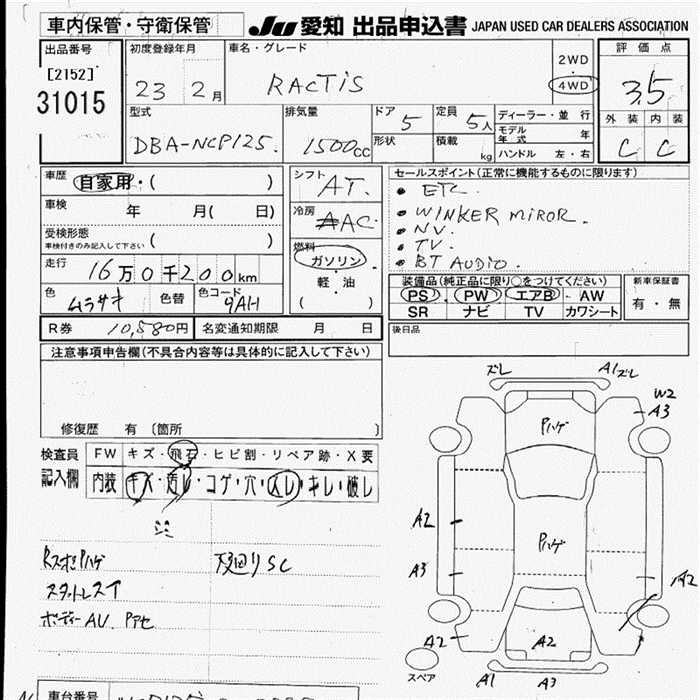 車内保管・守衛保管
JU 愛知 出品申込書 JAPAN USED CAR DEALERS ASSOCIATION
出品番号
[2152]
31015
初度登録年月
23 2月
車名・グレード
RACTIS
2WD
4WD
評価点
3.5
外装 内装
C C
型式
DBA-NCP125.
排気量
1500cc
ドア 5
形状
定員 5人
積載 kg
ディーラー・並行
モデル年式 年
ハンドル 左・右
車歴 自家用・( )
車検 年 月( 日)
受検形態
車検付きのみ記入して下さい ( )
走行 16万0千200km
色 ムラサキ 色替 色コード 9AH
R券 10,580円 名変通知期限 月 日
シフト AT.
冷房 AAC
燃料
ガソリン
軽・油
( )
セールスポイント(正常に機能するものに限ります)
• ETC
• WINKER MIROR.
• NV.
• TV.
• BT AUDIO.
装備品(純正品に限り○をつけてください)
PS・PW・エアB・AW
SR ナビ TV カワシート
新車保証書
有・無
後日品
注意事項申告欄(不具合内容等は具体的に記入して下さい)
修復歴 有 〔箇所 〕
検査員記入欄
FW キズ・飛石・ヒビ割・リペア跡・X要
内装 キズ・汚レ・コゲ・穴・スレ・キレ・破し
シミ
RスポPハゲ 下廻りSC
スタットレスT
ボディーAU. Pアセ
ズレ A1ズレ
W2
A3
Pハゲ
A2
Pハゲ
A3
A2
A2
A2
スペア
A1 A3
車台番号